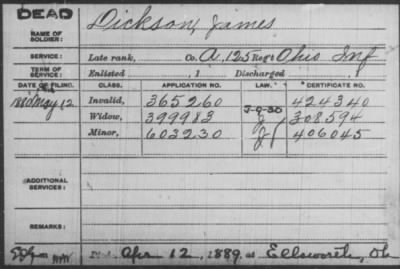 DEAD
NAME OF SOLDIER: Dickson, James
SERVICE: Late rank, Co. A, 125 Reg't Ohio Inf
TERM OF SERVICE: Enlisted , 1 Discharged , 1
DATE OF FILING. CLASS. APPLICATION NO. LAW. CERTIFICATE NO.
1880 May 12 Invalid, 365260 424340
Widow, 399983 J-9-30 308594
Minor, 603230 406045
ADDITIONAL SERVICES:
REMARKS:
Apr 12, 1889, at Ellsworth, Oh